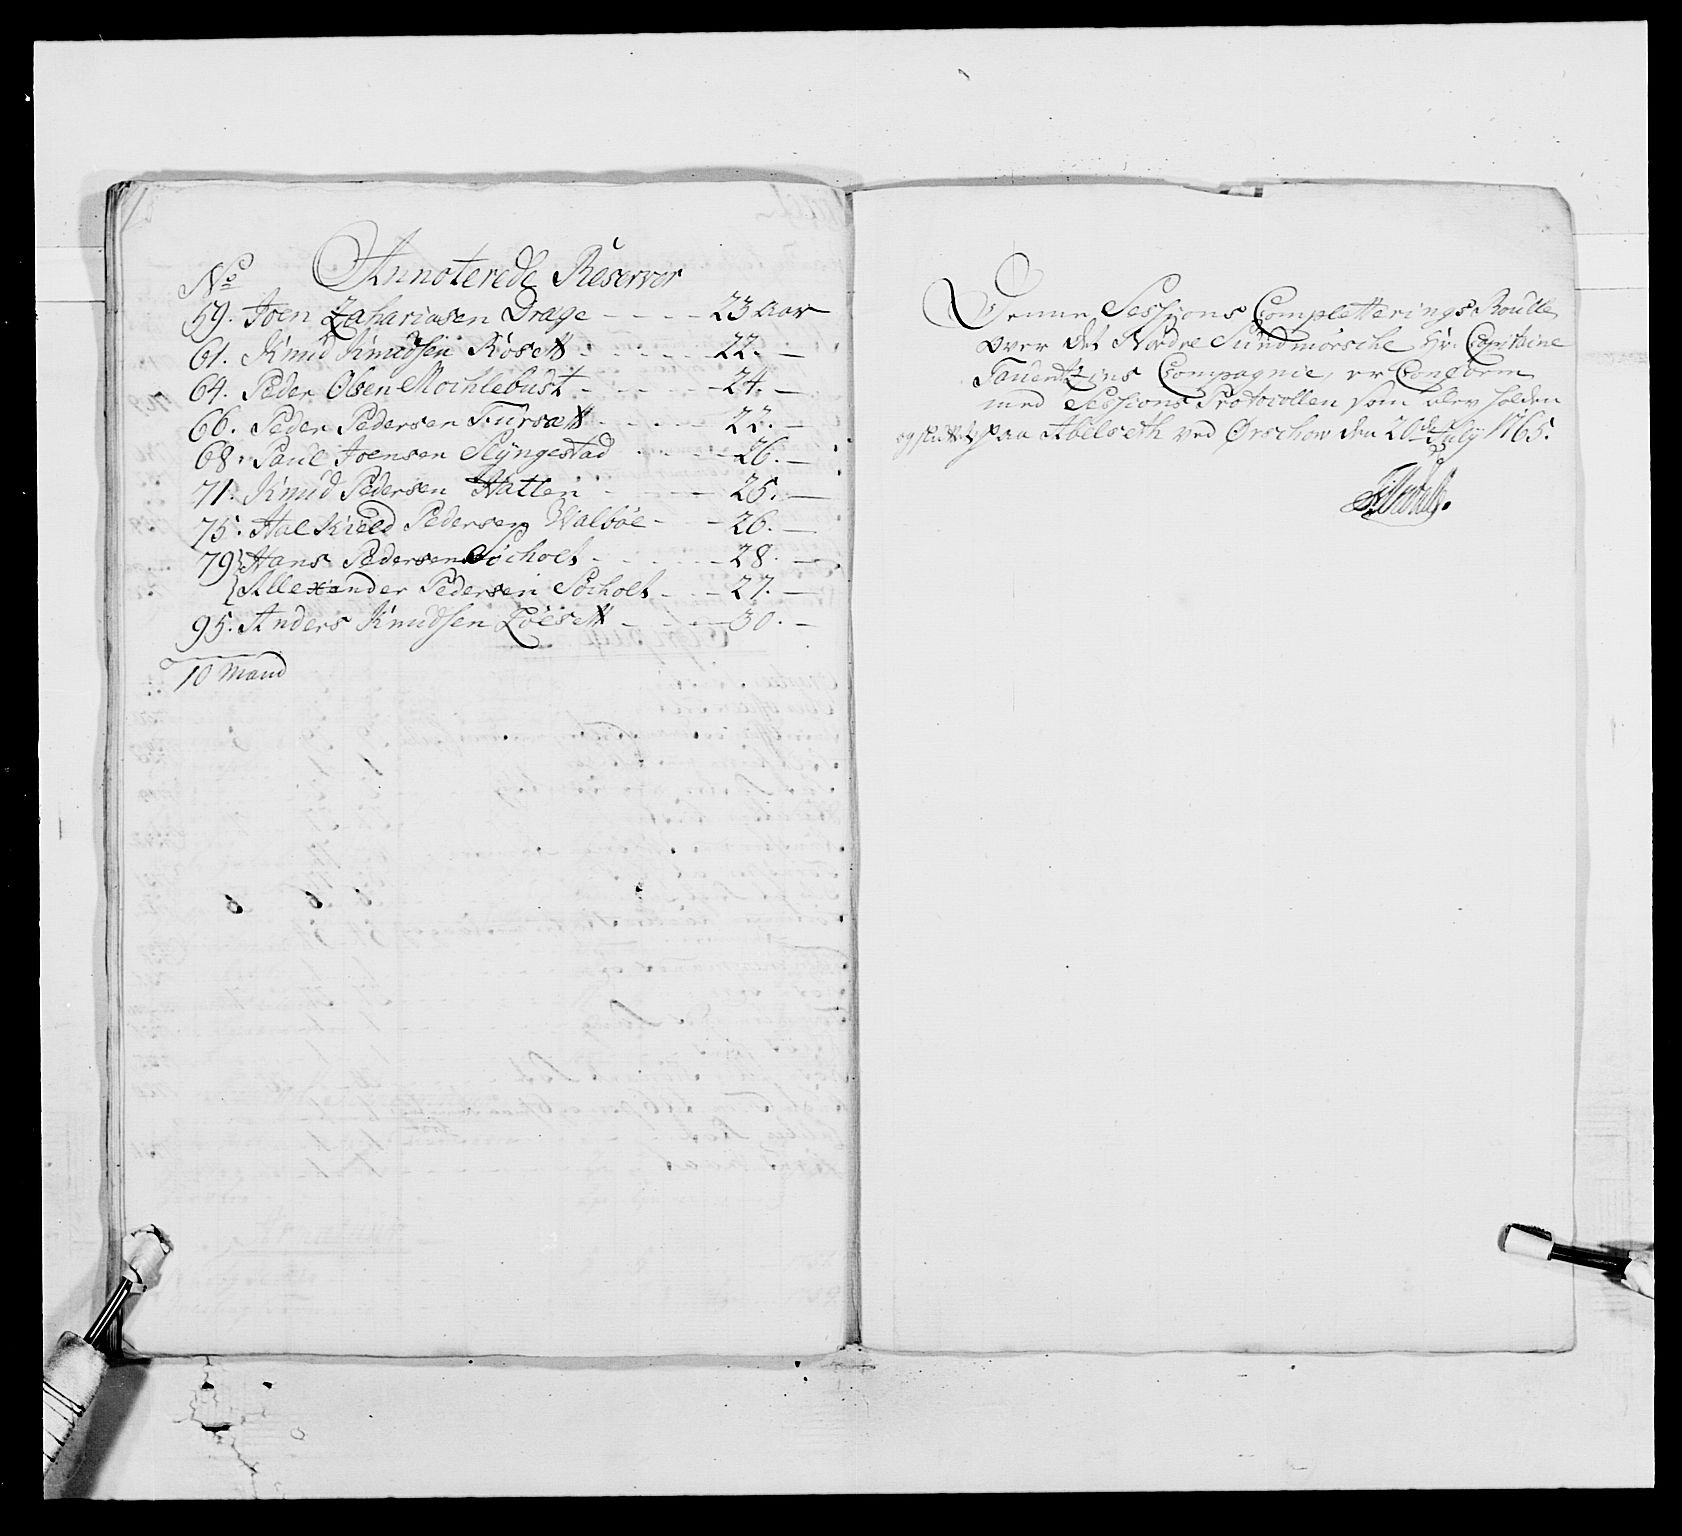 No Annoterede Reserver
59. Joen Zachariasen Drage - - - - 23 Aar
61. Knud Knudsen Rösett - - - - - 22. -
64. Peder Olsen Mochlebust - - - - - 24. -
66. Peder Pedersen Fürsætt - - - - - 22. -
68. Paul Joensen Slÿngestad - - - - 26. -
71. Knud Pedersen Hatlen - - - - - 25. -
75. Hal Kield Pedersen Walböe - - - 26. -
79 Hans Pedersen Söcholt - - - - - 28. -
Allexander Pedersen Söcholt - - - 27. -
95. Anders Knudsen Löesett - - - - 30. -
10 Mand
Denne Sessions Completterings Roulle
over det Nordre Sündmörsche Hr. Capitaine
Compagnie, er Conform
med Sessions Protocollen som blev holden
og sluttet paa Abelseth ved Ørschow den 20de July 1765.